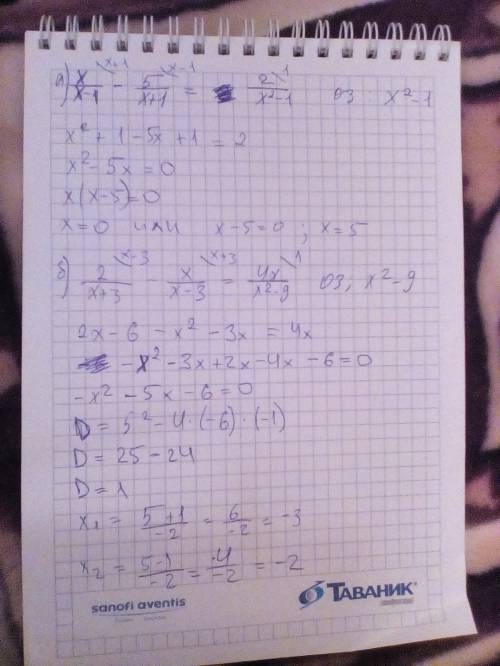 а) x/x-1 \x+1 - 5/x+1 \x-1 = 2/x²-1 \1 оз : x²-1
x² + 1 - 5x + 1 = 2
x² - 5x = 0
x(x-5)=0
x=0 или x-5=0 ; x=5
б) 2/x+3 \x-3 - x/x-3 \x+3 = 4x/x²-9 \1 оз; x²-9
2x-6 - x² - 3x = 4x
-x² - 3x + 2x - 4x - 6 = 0
-x² - 5x - 6 = 0
D = 5² - 4·(-6)·(-1)
D = 25 - 24
D = 1
x₁ = 5+1/-2 = 6/-2 = -3
x₂ = 5-1/-2 = 4/-2 = -2
sanofi aventis
ТАВАНИК®